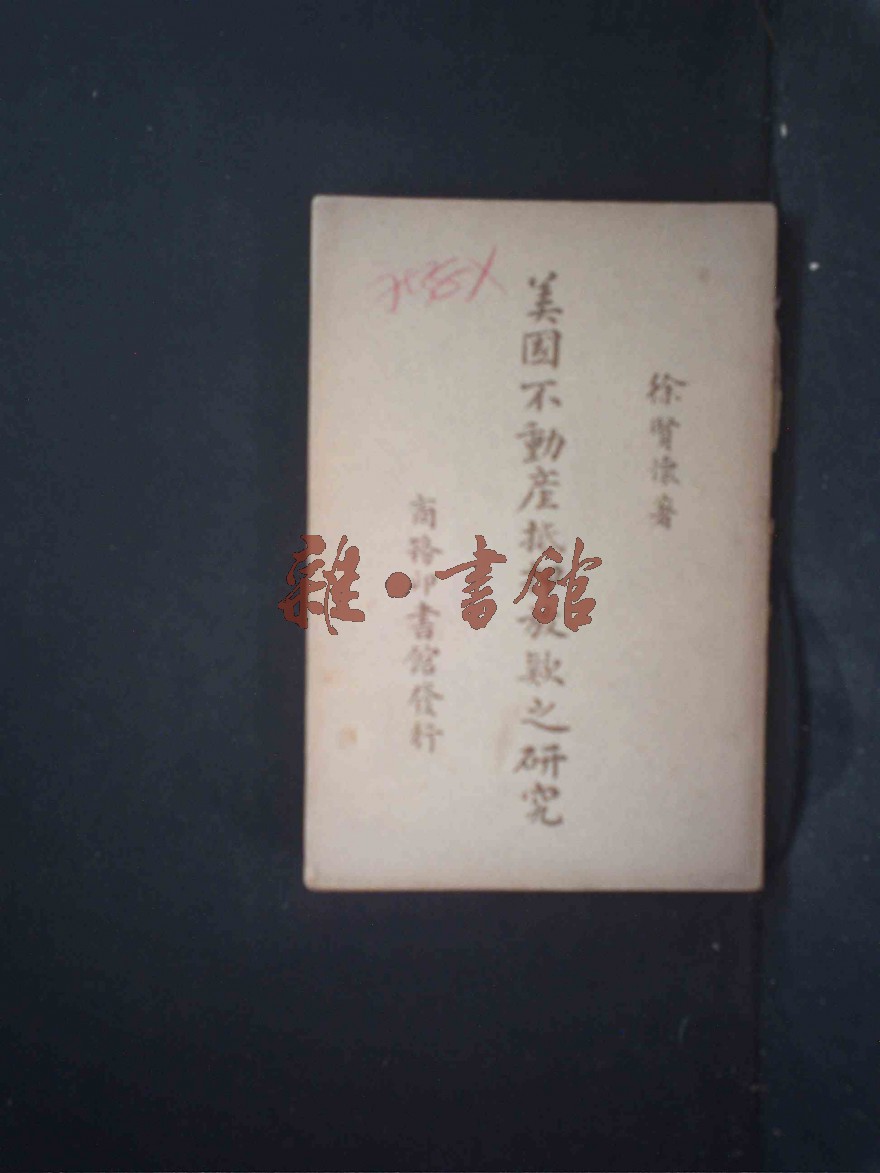 徐賢懷著
美國不動產抵押放款之研究
商務印書館發行
雜·書館